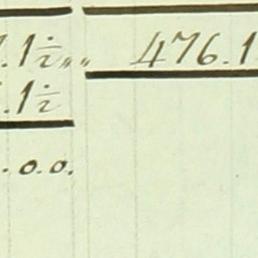 .1½ „ „ 476.1
.1½
.o.o.